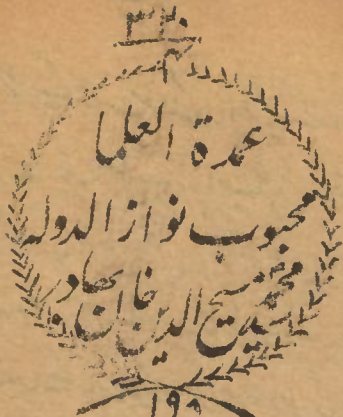 ۳۲۰
عمدة العلما
محبوب نواز الدولہ
محمد مسیح الدین خان بهادر
۱۹۹